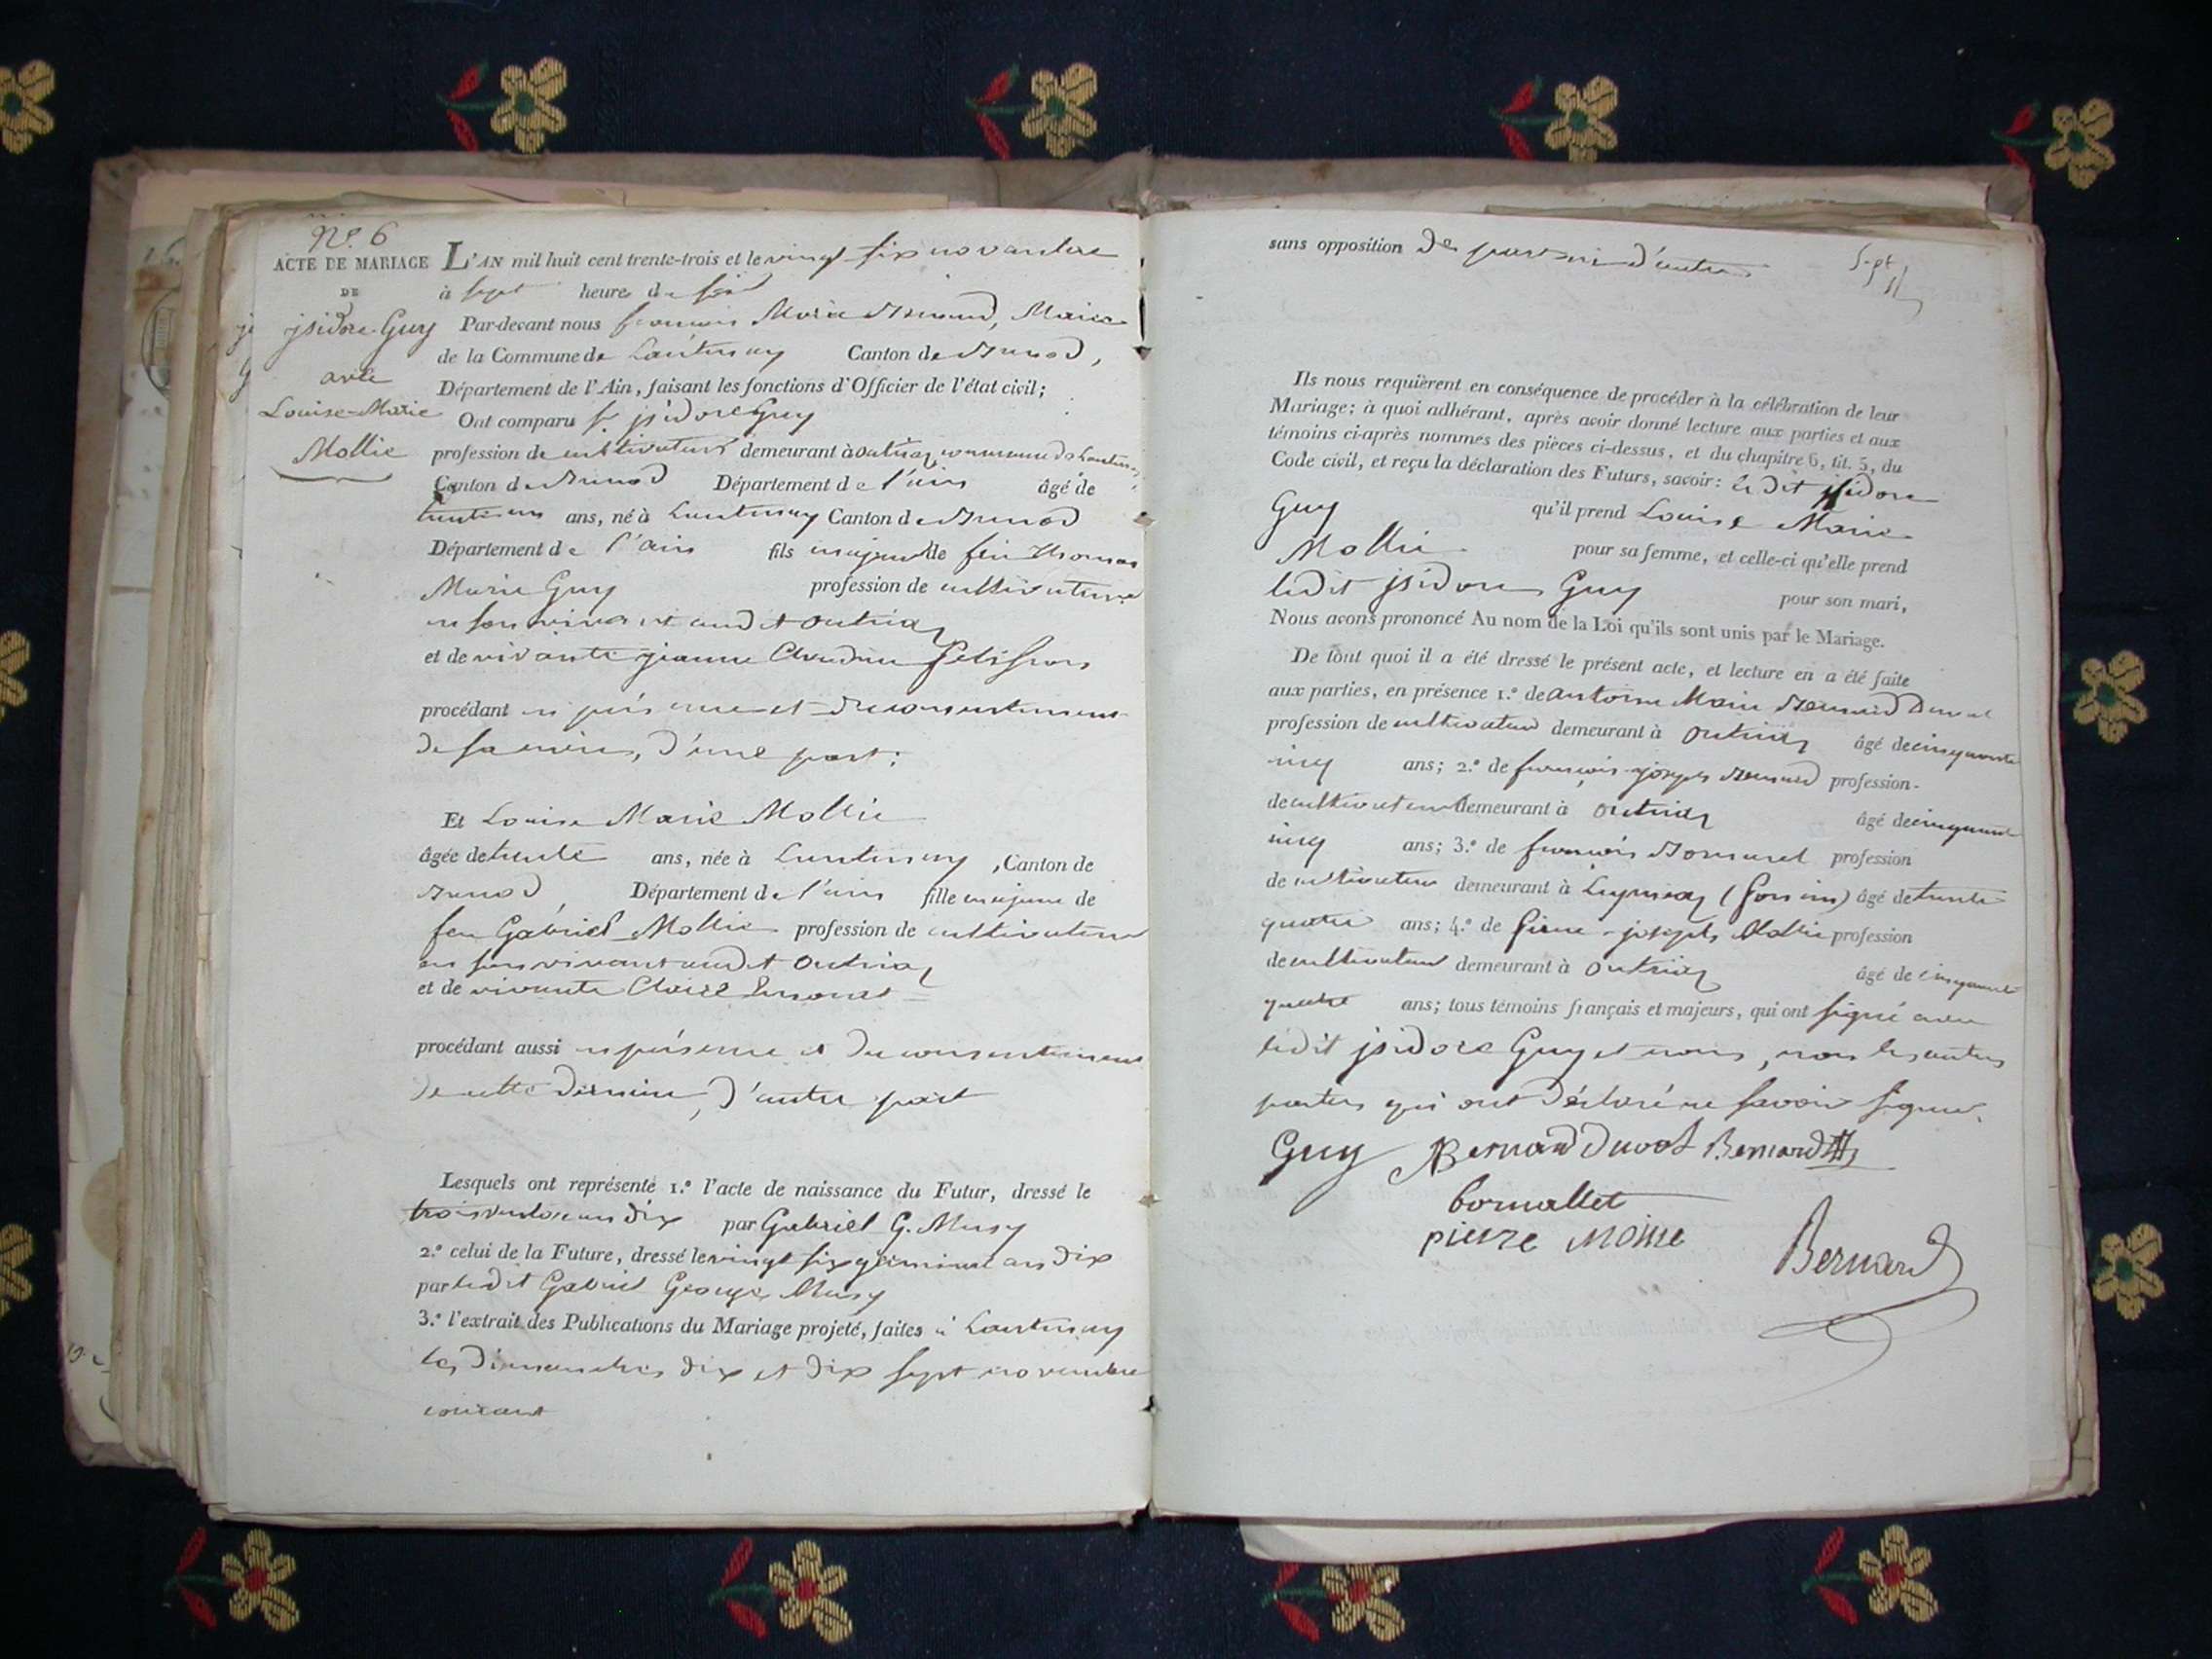 N.º 6
ACTE DE MARIAGE
DE
jsidore Guy
avec
Louise-Marie
Mollie
L'AN mil huit cent trente-trois et le vingt six novembre
à sept heures du soir
Par-devant nous françois Marie Bernard, Maire
de la Commune de Lantenay Canton de Brenod,
Département de l'Ain, faisant les fonctions d'Officier de l'état civil;
Ont comparu s.r jsidore Guy
profession de cultivateur demeurant à outriaz, commune de Lantenay,
Canton de Brenod Département de l'ain âgé de
trente un ans, né à Lantenay Canton de Brenod
Département de l'ain fils majeur de feu Thomas
Marie Guy profession de cultivateur
en son vivant audit outriaz
et de vivante jeanne Claudine
procédant en présence et du consentement
de sa mère, d'une part;
Et Louise Marie Mollie
âgée de trente ans, née à Lantenay, Canton de
Brenod, Département de l'ain fille majeure de
feu Gabriel Mollie profession de cultivateur
en son vivant audit outriaz
et de vivante Claire
procédant aussi en présence et du consentement
de cette dernière, d'autre part
Lesquels ont représenté 1.º l'acte de naissance du Futur, dressé le
trois ventose an dix par Gabriel G. Musy
2.º celui de la Future, dressé le vingt six germinal an dix
par ledit Gabriel George Musy
3.º l'extrait des Publications du Mariage projeté, faites à Lantenay
les dimanches dix et dix sept novembre
courant
sans opposition de part ni d'autre
Sept
Ils nous requièrent en conséquence de procéder à la célébration de leur
Mariage; à quoi adhérant, après avoir donné lecture aux parties et aux
témoins ci-après nommés des pièces ci-dessus, et du chapitre 6, tit. 5, du
Code civil, et reçu la déclaration des Futurs, savoir: le dit jsidore
Guy qu'il prend Louise Marie
Mollie pour sa femme, et celle-ci qu'elle prend
ledit jsidore Guy pour son mari,
Nous avons prononcé Au nom de la Loi qu'ils sont unis par le Mariage.
De tout quoi il a été dressé le présent acte, et lecture en a été faite
aux parties, en présence 1.º de antoine Marie Bernard Duvot
profession de cultivateur demeurant à outriaz âgé de cinquante
cinq ans; 2.º de françois joseph Bernard profession
de cultivateur demeurant à outriaz âgé de cinquante
cinq ans; 3.º de françois profession
de cultivateur demeurant à âgé de trente
quatre ans; 4.º de pierre joseph Mollie profession
de cultivateur demeurant à outriaz âgé de cinquante
quatre ans; tous témoins français et majeurs, qui ont signé avec
ledit jsidore Guy et nous, non les autres
parties qui ont déclaré ne savoir signer.
Guy Bernard Duvot Bernard
bornallet
pierre
Bernard